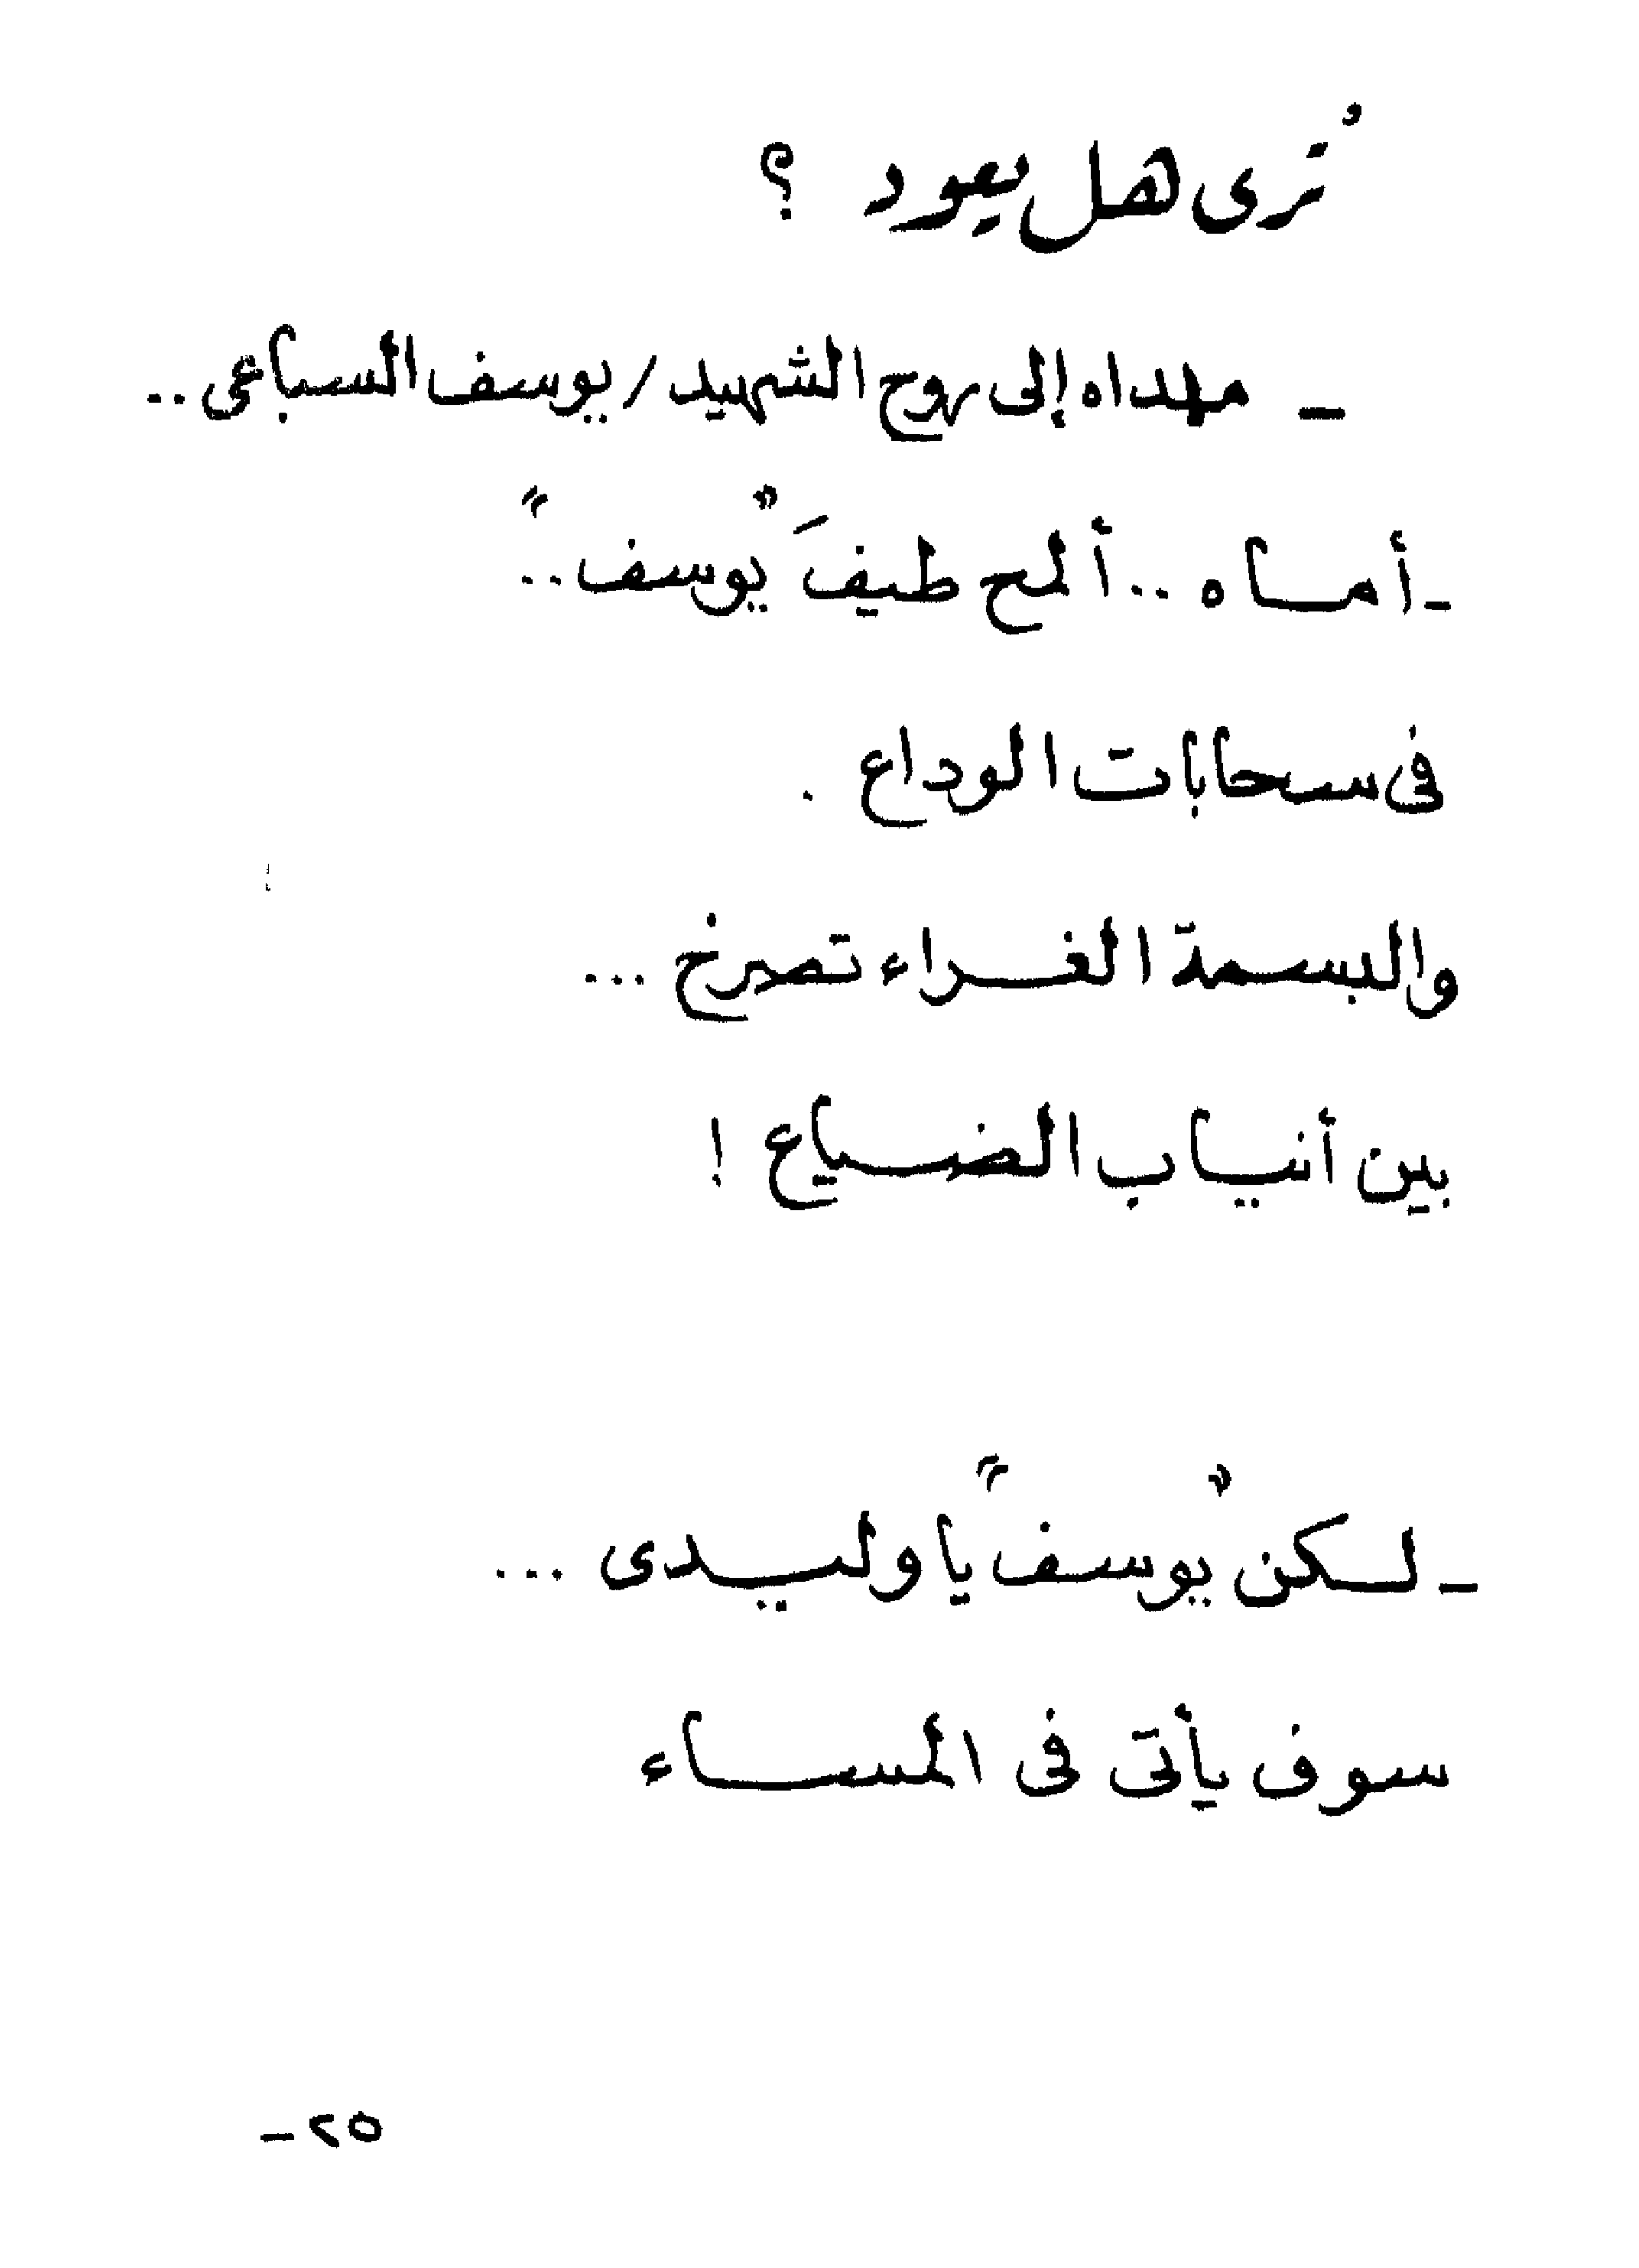 تُرى هل يعود ؟
- مهداه إلى روح الشهيد / يوسف السباعى ..
- أماه .. ألمح طيفَ "يوسف" ..
فى سحابات الوداع .
والبسمة الغراء تصرخ ...
بين أنياب الضياع !
- لكن "يوسف" يا وليدى ...
سوف يأتى فى المساء
-٢٥